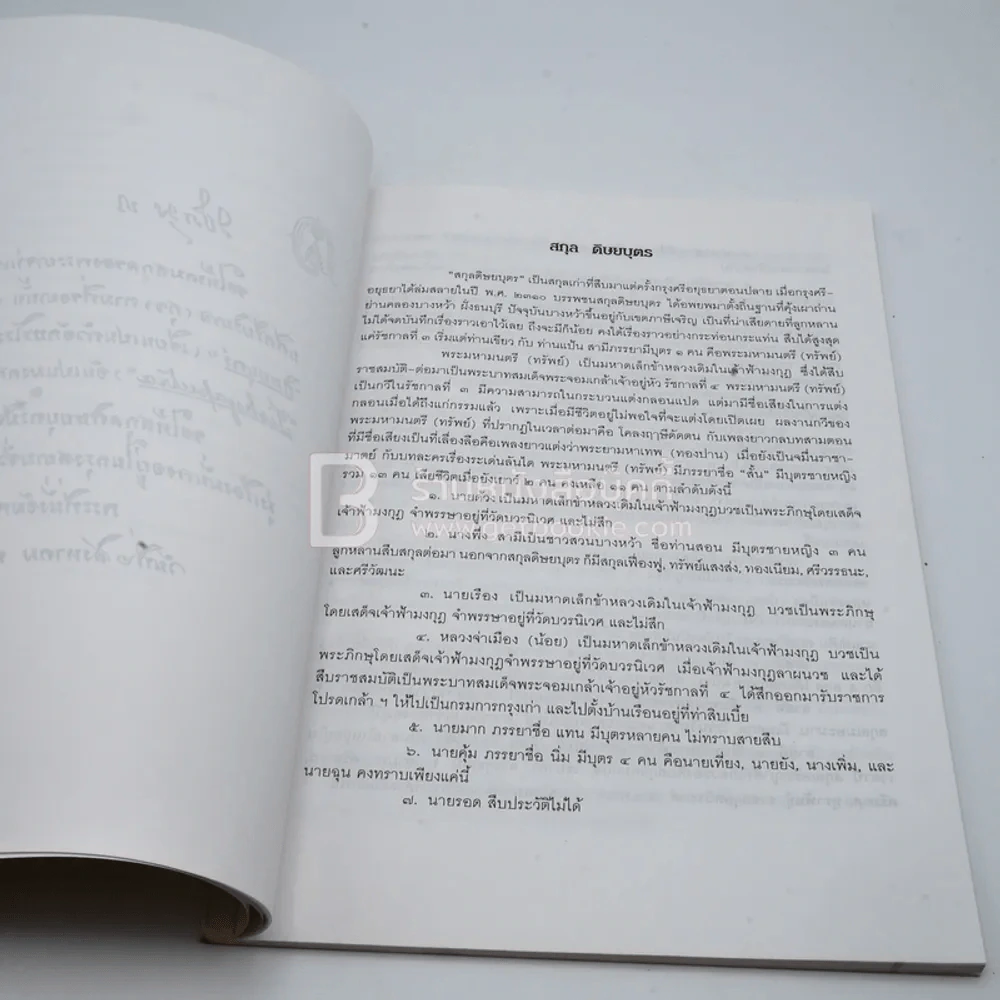 สกุล ดิษยบุตร
"สกุลดิษยบุตร" เป็นสกุลเก่าที่สืบมาแต่ครั้งกรุงศรีอยุธยาตอนปลาย เมื่อกรุงศรี-
อยุธยาได้ล่มสลายในปี พ.ศ. ๒๓๑๐ บรรพชนสกุลดิษยบุตร ได้อพยพมาตั้งถิ่นฐานที่คุ้งเผาถ่าน
ย่านคลองบางหว้า ฝั่งธนบุรี ปัจจุบันบางหว้าขึ้นอยู่กับเขตภาษีเจริญ เป็นที่น่าเสียดายที่ลูกหลาน
ไม่ได้จดบันทึกเรื่องราวเอาไว้เลย ถึงจะมีก็น้อย คงได้เรื่องราวอย่างกระท่อนกระแท่น สืบได้สูงสุด
แค่รัชกาลที่ ๓ เริ่มแต่ท่านเขียว กับ ท่านแป้น สามีภรรยามีบุตร ๑ คน คือพระมหามนตรี (ทรัพย์)
พระมหามนตรี (ทรัพย์) เป็นมหาดเล็กข้าหลวงเดิมในเจ้าฟ้ามงกุฎ ซึ่งได้สืบ
ราชสมบัติ-ต่อมาเป็นพระบาทสมเด็จพระจอมเกล้าเจ้าอยู่หัว รัชกาลที่ ๔ พระมหามนตรี (ทรัพย์)
เป็นกวีในรัชกาลที่ ๓ มีความสามารถในกระบวนแต่งกลอนแปด แต่มามีชื่อเสียงในการแต่ง
กลอนเมื่อได้ถึงแก่กรรมแล้ว เพราะเมื่อมีชีวิตอยู่ไม่พอใจที่จะแต่งโดยเปิดเผย ผลงานกวีของ
พระมหามนตรี (ทรัพย์) ที่ปรากฏในเวลาต่อมาคือ โคลงฤาษีดัดตน กับเพลงยาวกลบทสามตอน
ที่มีชื่อเสียงเป็นที่เลื่องลือคือเพลงยาวแต่งว่าพระยามหาเทพ (ทองปาน) เมื่อยังเป็นจมื่นราชา-
มาตย์ กับบทละครเรื่องระเด่นลันได พระมหามนตรี (ทรัพย์) มีภรรยาชื่อ "ลิ้น" มีบุตรชายหญิง
รวม ๑๓ คน เสียชีวิตเมื่อยังเยาว์ ๒ คน คงเหลือ ๑๑ คน ตามลำดับดังนี้
๑. นายด้วง เป็นมหาดเล็กข้าหลวงเดิมในเจ้าฟ้ามงกุฎบวชเป็นพระภิกษุโดยเสด็จ
เจ้าฟ้ามงกุฎ จำพรรษาอยู่ที่วัดบวรนิเวศ และไม่สึก
๒. นางพึ่ง สามีเป็นชาวสวนบางหว้า ชื่อท่านสอน มีบุตรชายหญิง ๓ คน
ลูกหลานสืบสกุลต่อมา นอกจากสกุลดิษยบุตร ก็มีสกุลเฟื่องฟู, ทรัพย์แสงส่ง, ทองเนียม, ศรีวรรธนะ,
และศรีวัฒนะ
๓. นายเรือง เป็นมหาดเล็กข้าหลวงเดิมในเจ้าฟ้ามงกุฎ บวชเป็นพระภิกษุ
โดยเสด็จเจ้าฟ้ามงกุฎ จำพรรษาอยู่ที่วัดบวรนิเวศ และไม่สึก
๔. หลวงจ่าเมือง (น้อย) เป็นมหาดเล็กข้าหลวงเดิมในเจ้าฟ้ามงกุฎ บวชเป็น
พระภิกษุโดยเสด็จเจ้าฟ้ามงกุฎจำพรรษาอยู่ที่วัดบวรนิเวศ เมื่อเจ้าฟ้ามงกุฎลาผนวช และได้
สืบราชสมบัติเป็นพระบาทสมเด็จพระจอมเกล้าเจ้าอยู่หัวรัชกาลที่ ๔ ได้สึกออกมารับราชการ
โปรดเกล้า ฯ ให้ไปเป็นกรมการกรุงเก่า และไปตั้งบ้านเรือนอยู่ที่ท่าสิบเบี้ย
๕. นายมาก ภรรยาชื่อ แทน มีบุตรหลายคน ไม่ทราบสายสืบ
๖. นายคุ้ม ภรรยาชื่อ นิ่ม มีบุตร ๔ คน คือนายเที่ยง, นายยัง, นางเพิ่ม, และ
นายฉุน คงทราบเพียงแค่นี้
๗. นายรอด สืบประวัติไม่ได้
ร้านหนังสือบุคกี้
www.getbookie.com